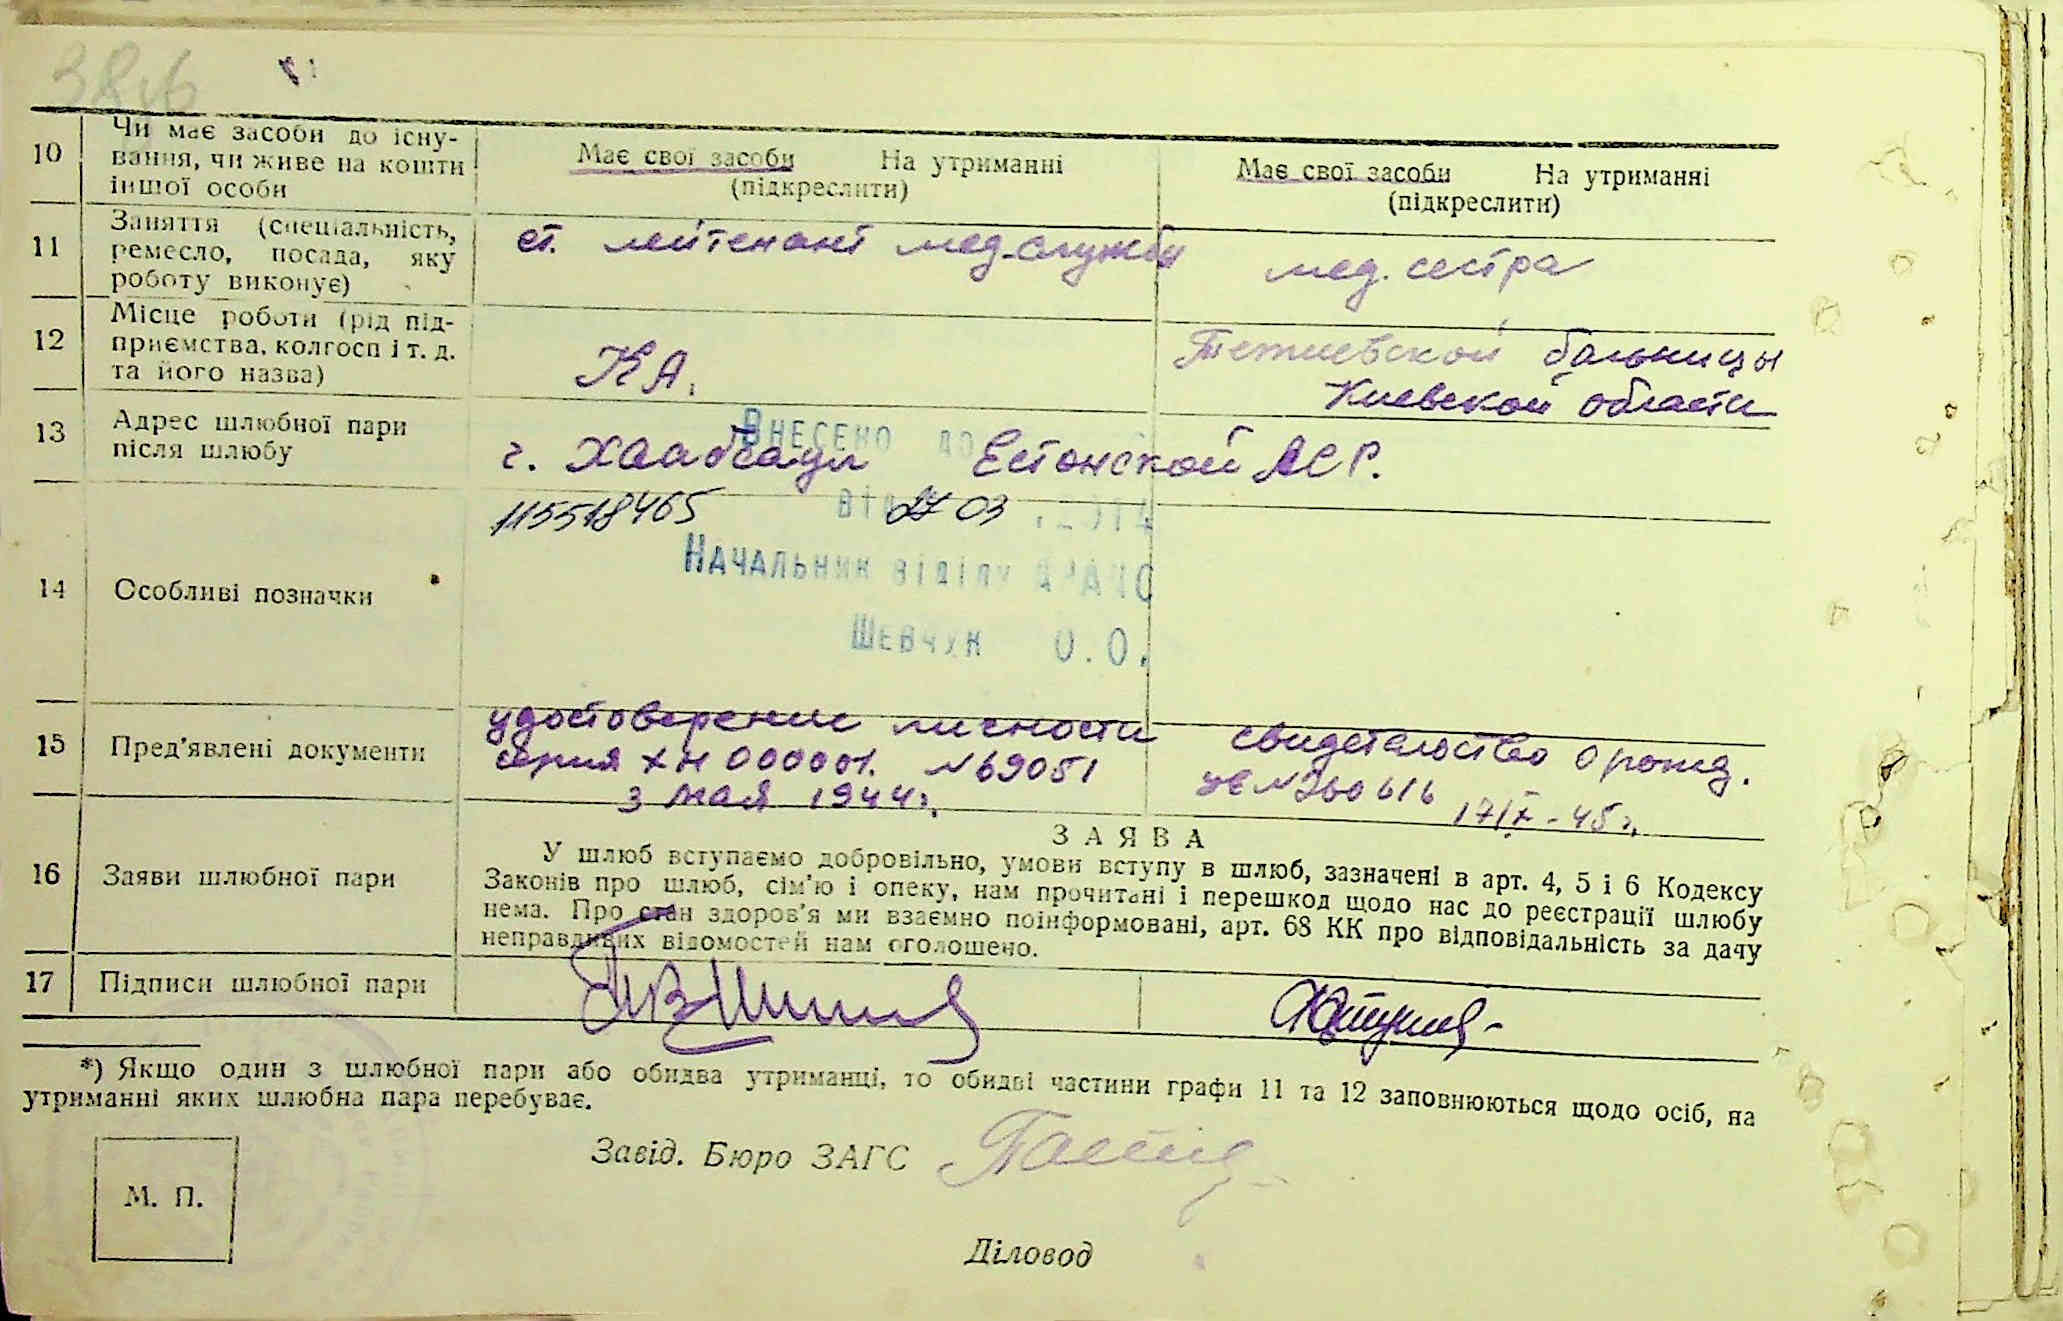 10 Чи має засоби до існу-
вання, чи живе на кошти
іншої особи
Має свої засоби На утриманні
(підкреслити)
Має свої засоби На утриманні
(підкреслити)
11 Заняття (спеціальність,
ремесло, посада, яку
роботу виконує)
ст. лейтенант мед-службы
мед. сестра
12 Місце роботи (рід під-
приємства, колгосп і т. д.
та його назва)
КА.
Тетиевской больницы
Киевской области
13 Адрес шлюбної пари
після шлюбу
г. Хаабсалу Естонской ССР.
Внесено до
115518465
від 27 03 .2014
14 Особливі позначки
Начальник відділу ДРАЦС
Шевчук О.О.
15 Пред'явлені документи
удостоверение личности
серия ХН 000001. №69051
3 мая 1944г.
свидетельство о рожд.
№260616 17/X-45г.
16 Заяви шлюбної пари
ЗАЯВА
У шлюб вступаємо добровільно, умови вступу в шлюб, зазначені в арт. 4, 5 і 6 Кодексу
Законів про шлюб, сім'ю і опеку, нам прочитані і перешкод щодо нас до реєстрації шлюбу
нема. Про стан здоров'я ми взаємно поінформовані, арт. 68 КК про відповідальність за дачу
неправдивих відомостей нам оголошено.
17 Підписи шлюбної пари
*) Якщо один з шлюбної пари або обидва утриманці, то обидві частини графи 11 та 12 заповнюються щодо осіб, на
утриманні яких шлюбна пара перебуває.
Завід. Бюро ЗАГС
М. П.
Діловод